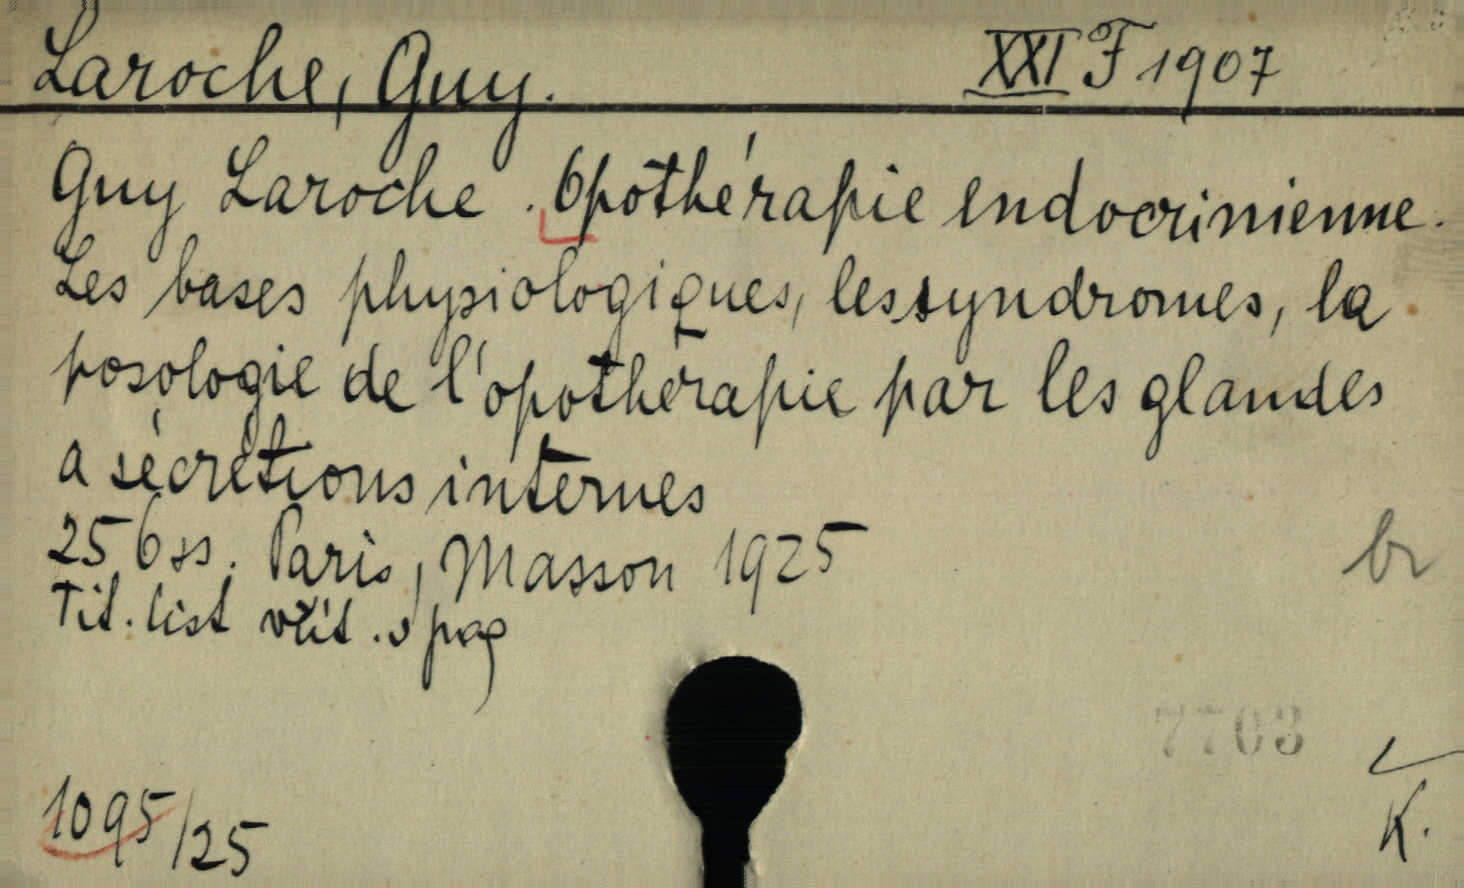 Laroche, Guy. XXI F 1907
Guy Laroche. Opothérapie endocrinienne.
Les bases physiologiques, les syndromes, la
posologie de l'opothérapie par les glandes
a sécrétions internes
256 ss. Paris, Masson 1925
Tit. list včít. v pag
br
7703
1095/25
K.